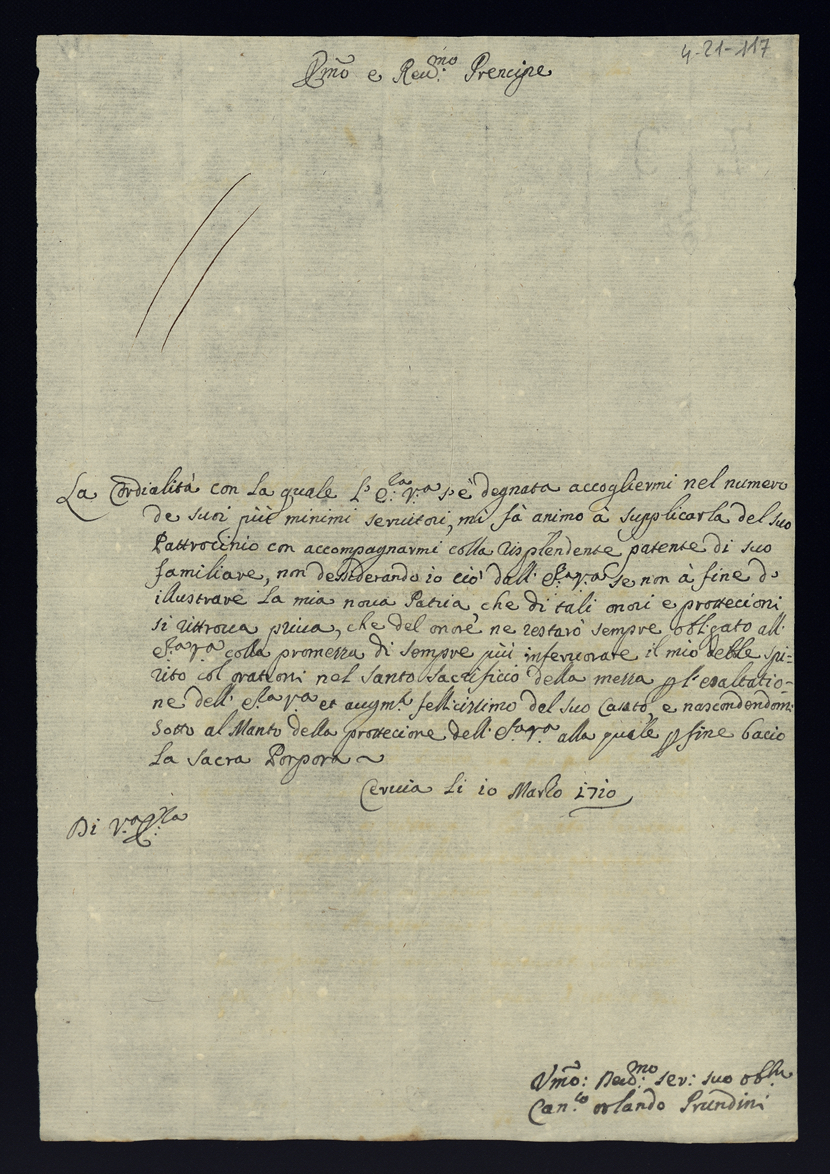 4-21-117
Emo e Reud:mo Prencipe
La Cordialità con La quale L'E:za V:a s'è degnata accogliermi nel numero
de suoi più minimi seruitori, mi fà animo à supplicarla del suo
Pattrocinio con accompagnarmi colla risplendente patente di suo
familiare, non desiderando io ciò dall' E:a V:a se non à fine d'
illustrare La mia noua Patria, che di tali onori e protteccioni
si rittroua priua, che del onore ne restarò sempre obligato all'
E:a V:a colla promessa di sempre più inferuorare il mio debbole spi=
rito col orationi nel santo sacrificio della messa p l'esaltatio-
ne dell' E:a V:a et augm:to fellicissimo del suo Casato e nascondendomi
Sotto al Manto della prottecione dell' E:a V:a alla quale p fine bacio
La sacra Porpora ~
Ceruia Li 10 Marzo 1710
Di V:a E:za
Vmo: Deud:mo ser: suo obl:
Can:co orlando